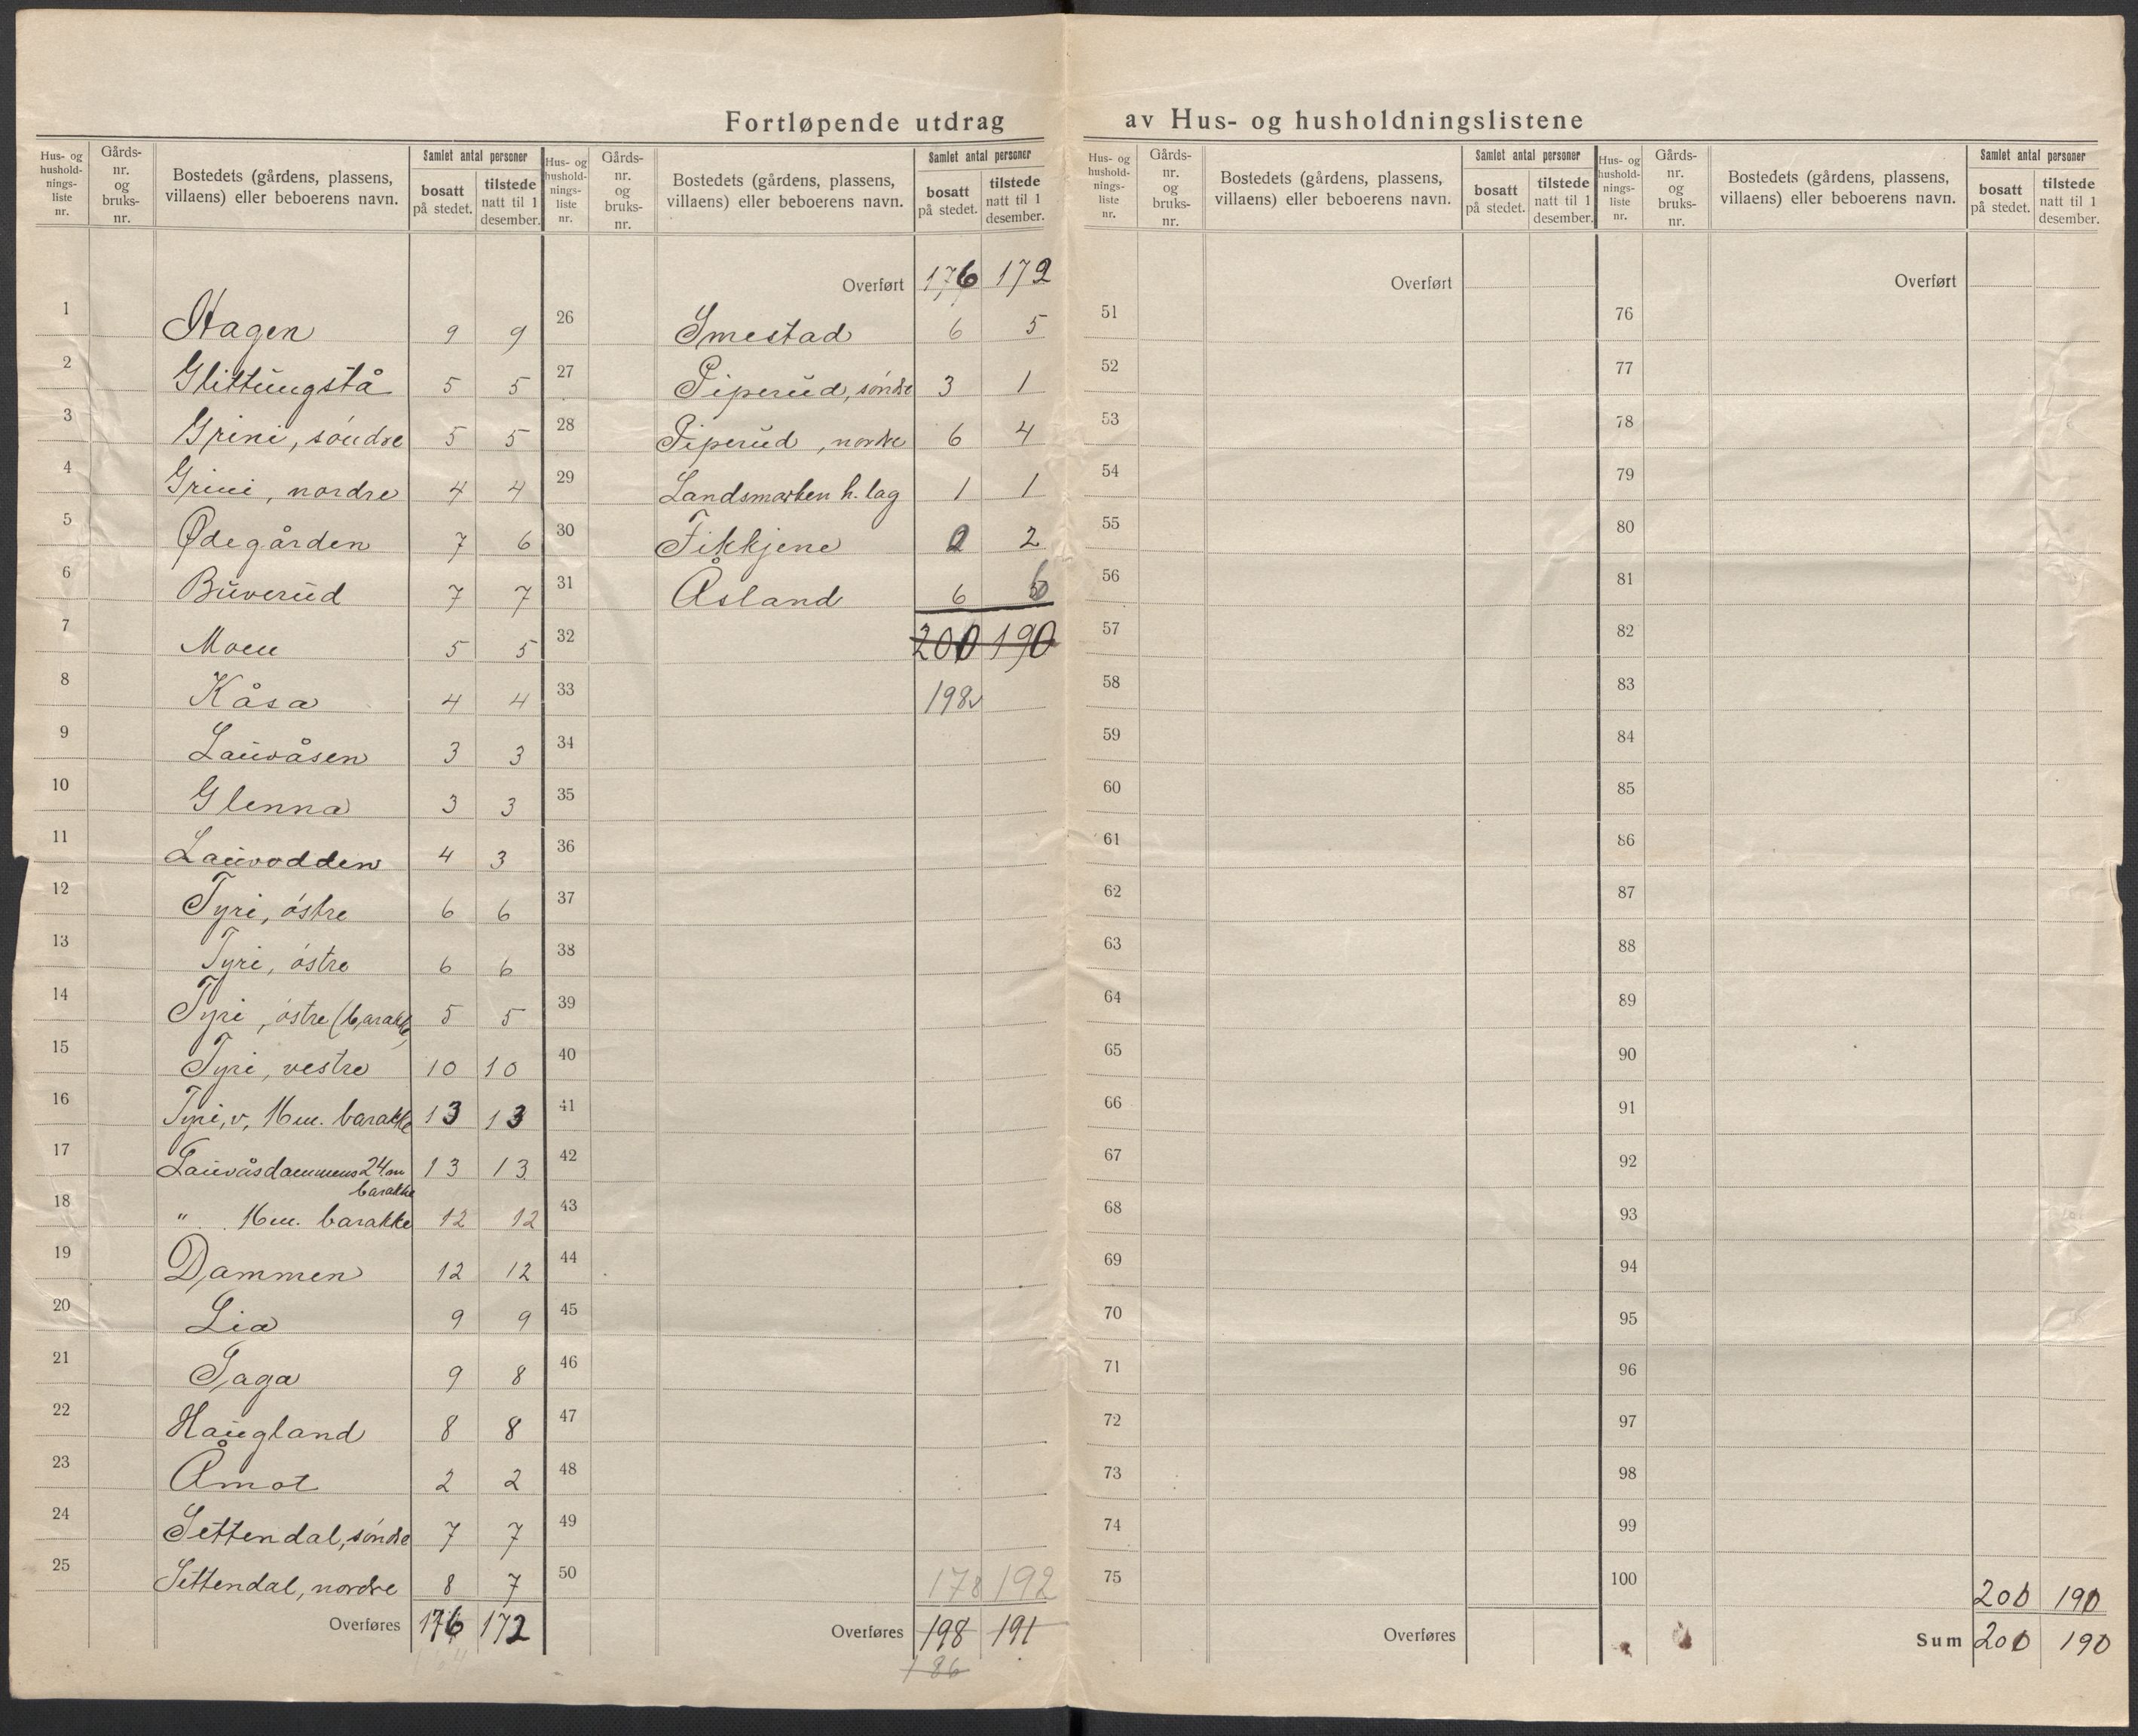 Fortløpende utdrag av Hus- og husholdningslistene
Hus- og hushold-nings-liste nr.
Gårds-nr. og bruks-nr.
Bostedets (gårdens, plassens, villaens) eller beboerens navn.
Samlet antal personer
bosatt på stedet.
tilstede natt til 1 desember.
1 Hagen 9 9
2 Glittungstå 5 5
3 Grini, søndre 5 5
4 Grini, nordre 4 4
5 Ødegården 7 6
6 Buverud 7 7
7 Moen 5 5
8 Kåsa 4 4
9 Lauvåsen 3 3
10 Glenna 3 3
11 Lauvodden 4 3
12 Tyri, østre 6 6
13 Tyri, østre 6 6
14 Tyri, østre (barakke) 5 5
15 Tyri, vestre 10 10
16 Tyri, v, 16 m. barakke 13 13
17 Lauvåsdammens 24 m barakke 13 13
18 " 16 m. barakke 12 12
19 Dammen 12 12
20 Lia 9 9
21 Saga 9 8
22 Haugland 8 8
23 Åmot 2 2
24 Settendal, søndre 7 7
25 Settendal, nordre 8 7
Overføres 176 172
Hus- og hushold-nings-liste nr.
Gårds-nr. og bruks-nr.
Bostedets (gårdens, plassens, villaens) eller beboerens navn.
Samlet antal personer
bosatt på stedet.
tilstede natt til 1 desember.
Overført 176 172
26 Smestad 6 5
27 Piperud, søndre 3 1
28 Piperud, nordre 6 4
29 Landsmarken h. lag 1 1
30 Fikkjene 2
31 Åsland 6 6
32 200 190
33 198
34
35
36
37
38
39
40
41
42
43
44
45
46
47
48
49
50 178 192
Overføres 198 191
186
Hus- og hushold-nings-liste nr.
Gårds-nr. og bruks-nr.
Bostedets (gårdens, plassens, villaens) eller beboerens navn.
Samlet antal personer
bosatt på stedet.
tilstede natt til 1 desember.
Overført
51
52
53
54
55
56
57
58
59
60
61
62
63
64
65
66
67
68
69
70
71
72
73
74
75
Overføres
Hus- og hushold-nings-liste nr.
Gårds-nr. og bruks-nr.
Bostedets (gårdens, plassens, villaens) eller beboerens navn.
Samlet antal personer
bosatt på stedet.
tilstede natt til 1 desember.
Overført
76
77
78
79
80
81
82
83
84
85
86
87
88
89
90
91
92
93
94
95
96
97
98
99
100 200 190
Sum 200 190